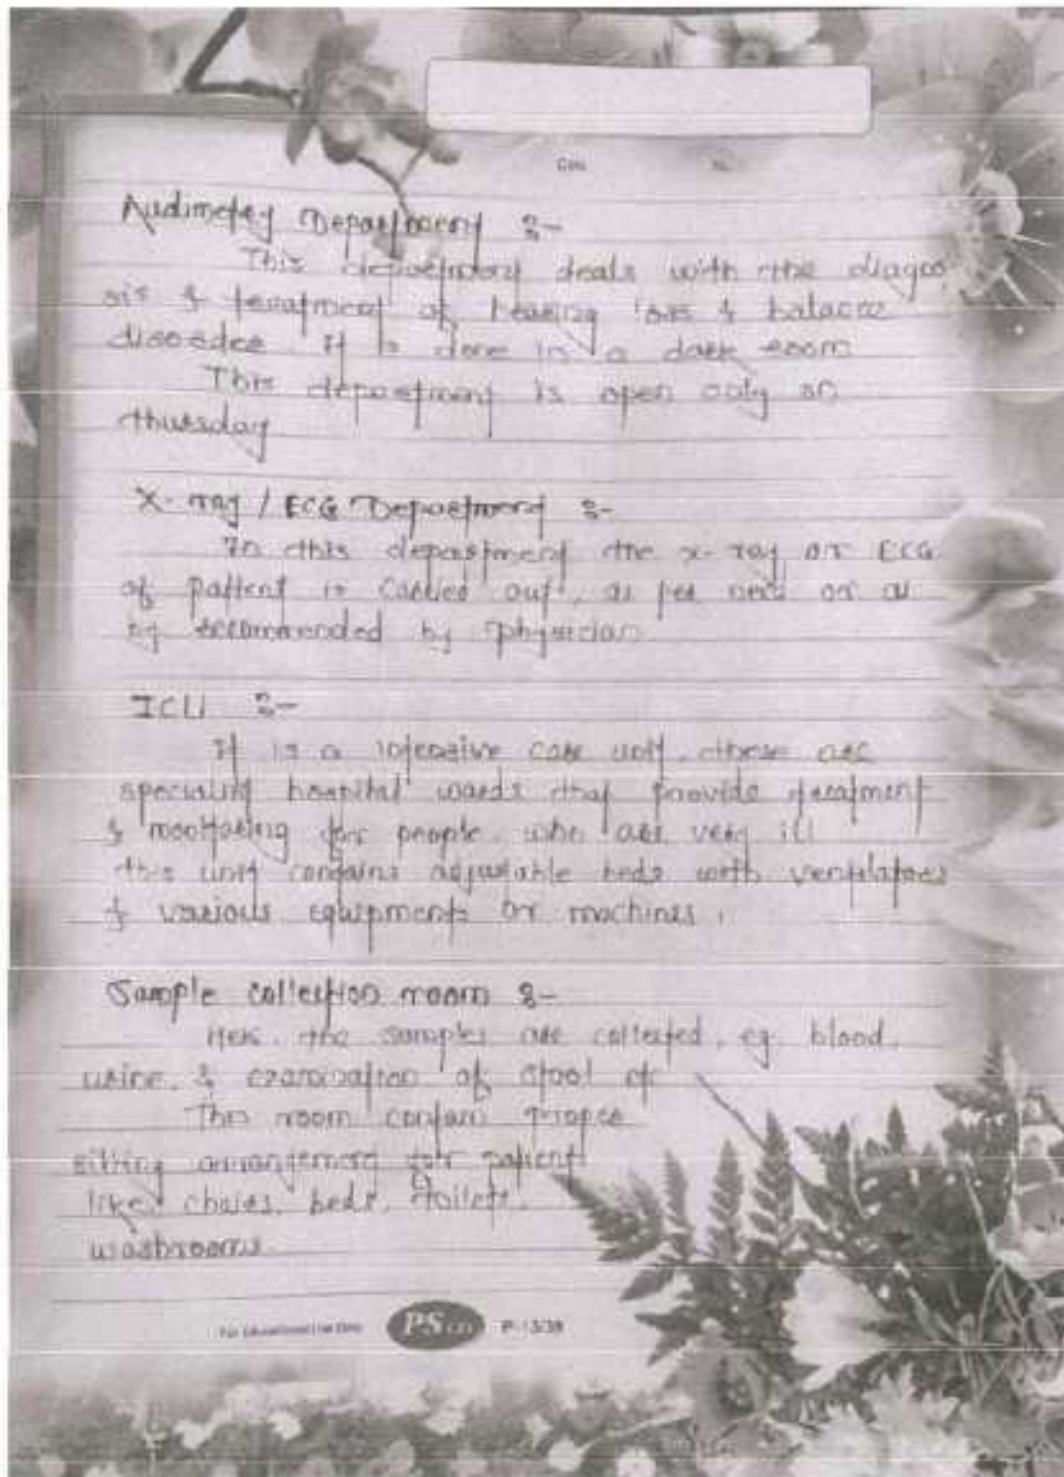 Audimetry Department :-
This department deals with the diagno
sis & treatment of hearing loss & balance
disorder It is done in a dark room
This department is open only on
thursday
X-ray / ECG Department :-
In this department the x-ray or ECG
of patient is carried out, as per need or as
recommended by physician
ICU :-
It is a intensive care unit. these are
speciality hospital wards that provide treatment
& monitoring for people. who are very ill
this unit contains adjustable beds with ventilators
& various equipments or machines.
Sample collection room :-
Here the samples are collected. eg. blood,
urine, & examination of stool etc
This room contain proper
sitting arrangement for patient
like chairs, beds, toilets,
washrooms.
For Educational Use Only PS P-1339